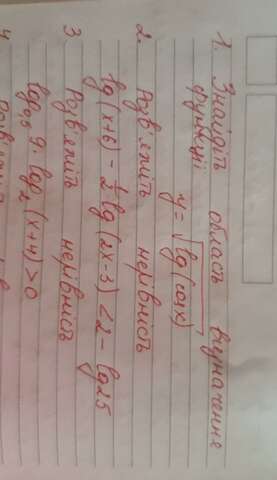 1. Знайдіть область визначення
функції
y = √lg(cos x)
2. Розв'яжіть нерівність
lg(x+6) - 1/2 lg(2x-3) < 2 - lg 25
3 Розв'яжіть нерівність
log₀,₅ 9 · log₂ (x+4) > 0
4